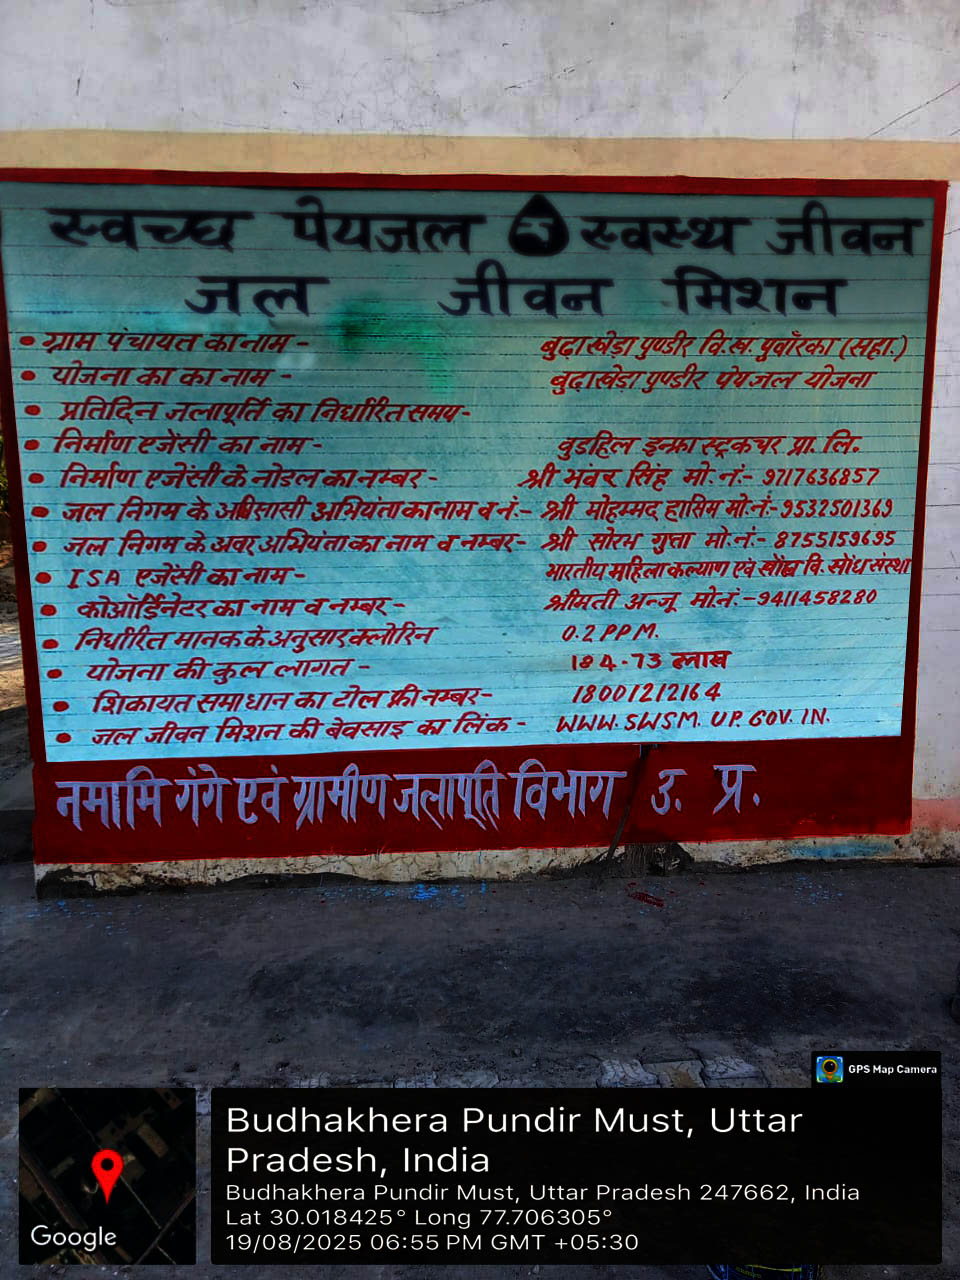 स्वच्छ पेयजल स्वस्थ जीवन
जल जीवन मिशन
• ग्राम पंचायत का नाम - बुढाखेड़ा पुण्डीर वि.ख. पुवाँरका (सहा.)
• योजना का का नाम - बुढाखेड़ा पुण्डीर पेयजल योजना
• प्रतिदिन जलापूर्ति का निर्धारित समय-
• निर्माण एजेंसी का नाम - वुडहिल इन्फ्रा स्ट्रकचर प्रा. लि.
• निर्माण एजेंसी के नोडल का नम्बर - श्री भंवर सिंह मो.नं:- 9717636857
• जल निगम के अधिशासी अभियंता का नाम व नं:- श्री मोहम्मद हासिम मो.नं:-9532501369
• जल निगम के अवर अभियंता का नाम व नम्बर- श्री सोरभ गुप्ता मो.नं:- 8755159695
• ISA एजेंसी का नाम - भारतीय महिला कल्याण एवं वि. संस्था
• कोऑर्डिनेटर का नाम व नम्बर- श्रीमती अन्जू मो.नं.-9411458280
• निर्धारित मानक के अनुसार क्लोरिन 0.2 PPM.
• योजना की कुल लागत - 184.73 लाख
• शिकायत समाधान का टोल फ्री नम्बर- 18001212164
• जल जीवन मिशन की बेवसाइ का लिंक - WWW.SWSM.UP.GOV.IN.
नमामि गंगे एवं ग्रामीण जलापूर्ति विभाग उ. प्र.
GPS Map Camera
Budhakhera Pundir Must, Uttar
Pradesh, India
Budhakhera Pundir Must, Uttar Pradesh 247662, India
Lat 30.018425° Long 77.706305°
19/08/2025 06:55 PM GMT +05:30
Google